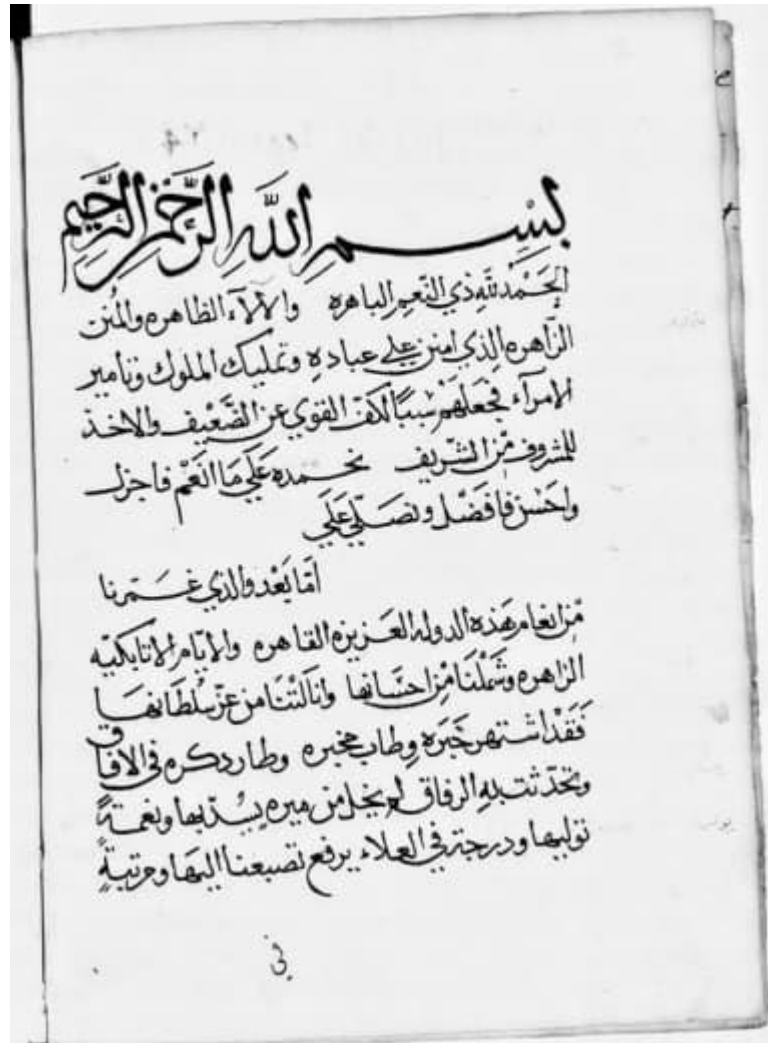 بِسْمِ اللَّهِ الرَّحْمٰنِ الرَّحِيمِ
الحَمْدُ لِلّهِ ذي النّعم الباهره والآلاء الظاهره والمُنن
الزّاهره الذي امتن علي عباده وتمليك الملوك وتامير
الامرآء فجعلهم سببًا لكف القوي عن الضَّعيف والاخذ
للمشروف مّن الشّريف نحمده عَلَي مَا انعَم فاجزل
واحسن فافضل ونصَلّي عَلَي
امّا بَعْد والذي غمرنا
مّن انعام هذه الدوله العَزيزه القاهره والايّام الاتابكيّه
الزاهره وشملنا مّن احسَانها وانالتنا من عزّ سُلطانهَا
فَقَد اشتهر خَبَره وطاب مخبره وطار دكره في الافاق
وتحدّثت به الرفاق لم يخل من ميره يسْدّيها ونعمةً
توليها ودرجة في العلاء يرفع تصبعنا اليهَا ومرتبةٍ
في